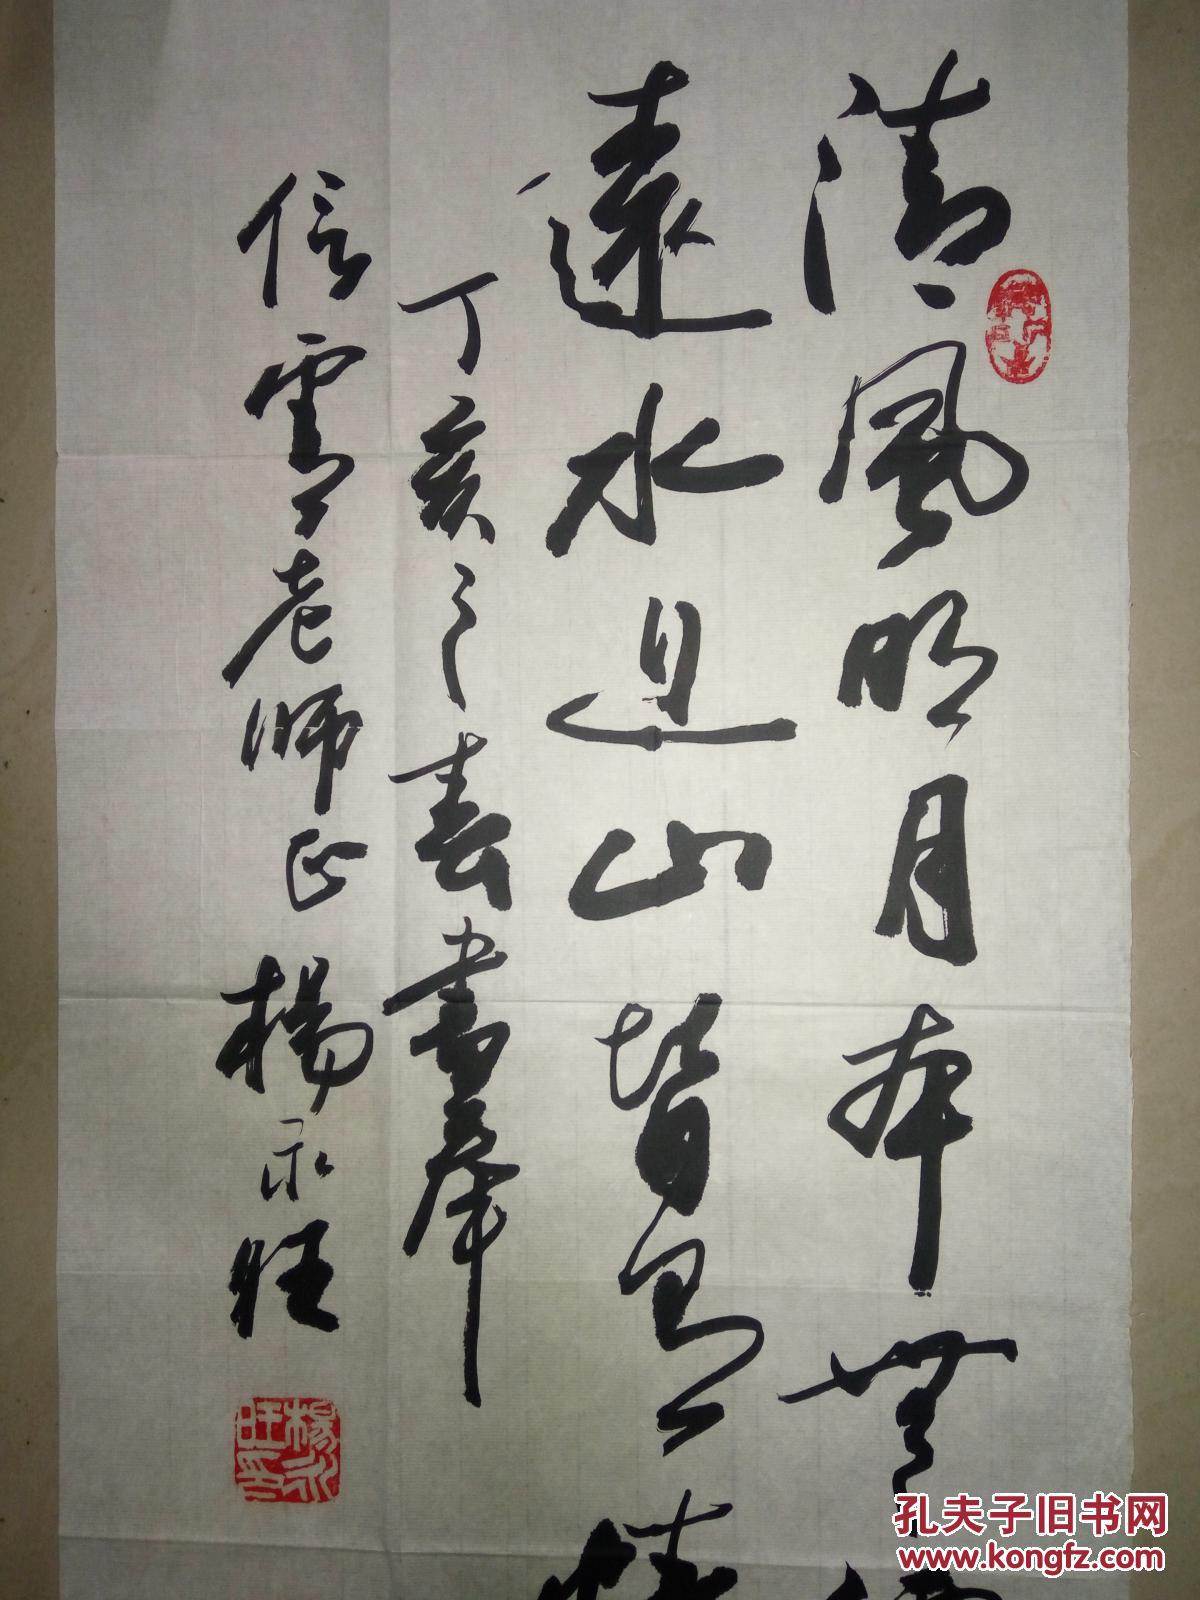 清風明月本無
遠水近山皆有情
丁亥之春書奉
信雲老師正 楊永旺
楊永旺印
孔夫子旧书网
www.kongfz.com